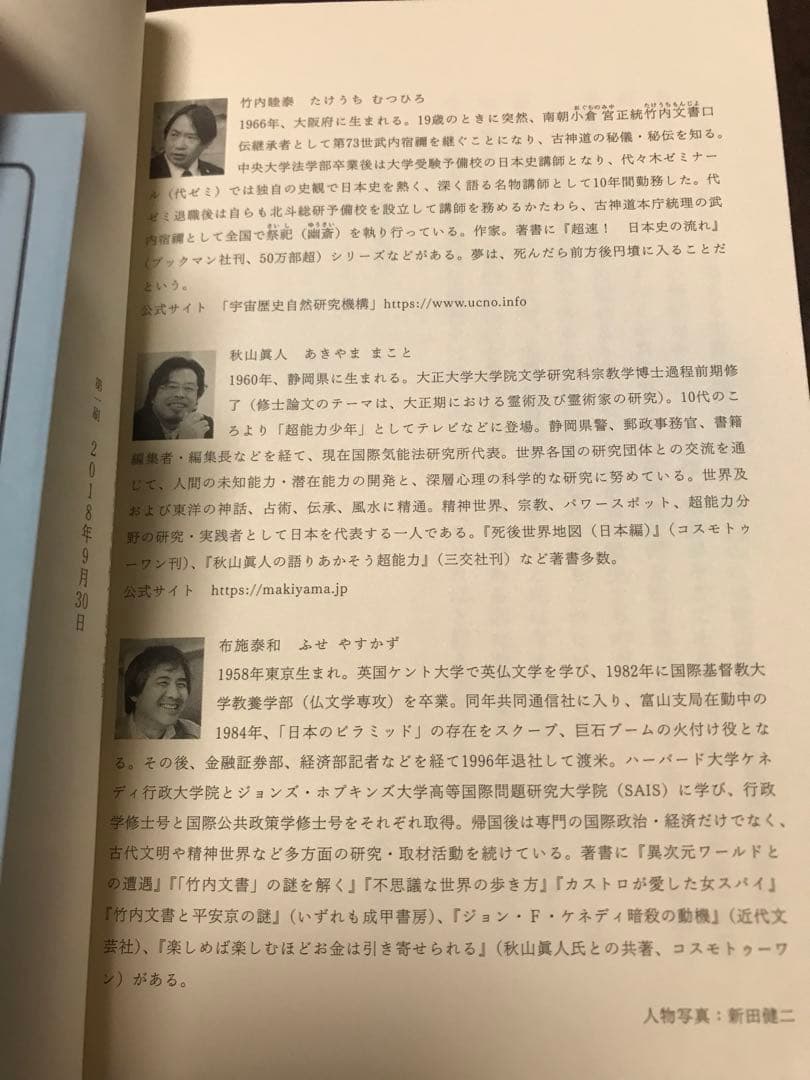 竹内睦泰　たけうち むつひろ
1966年、大阪府に生まれる。19歳のときに突然、南朝小倉宮正統竹内文書口
おぐらのみや
たけうちもんじょ
伝継承者として第73世武内宿禰を継ぐことになり、古神道の秘儀・秘伝を知る。
中央大学法学部卒業後は大学受験予備校の日本史講師となり、代々木ゼミナー
ル（代ゼミ）では独自の史観で日本史を熱く、深く語る名物講師として10年間勤務した。代
ゼミ退職後は自らも北斗総研予備校を設立して講師を務めるかたわら、古神道本庁統理の武
内宿禰として全国で祭祀（幽斎）を執り行っている。作家。著書に『超速！　日本史の流れ』
さいし
ゆうさい
（ブックマン社刊、50万部超）シリーズなどがある。夢は、死んだら前方後円墳に入ることだ
という。
公式サイト　「宇宙歴史自然研究機構」https://www.ucno.info
秋山眞人　あきやま まこと
1960年、静岡県に生まれる。大正大学大学院文学研究科宗教学博士過程前期修
了（修士論文のテーマは、大正期における霊術及び霊術家の研究）。10代のこ
ろより「超能力少年」としてテレビなどに登場。静岡県警、郵政事務官、書籍
編集者・編集長などを経て、現在国際気能法研究所代表。世界各国の研究団体との交流を通
じて、人間の未知能力・潜在能力の開発と、深層心理の科学的な研究に努めている。世界及
および東洋の神話、占術、伝承、風水に精通。精神世界、宗教、パワースポット、超能力分
野の研究・実践者として日本を代表する一人である。『死後世界地図（日本編）』（コスモトゥ
ーワン刊）、『秋山眞人の語りあかそう超能力』（三交社刊）など著書多数。
公式サイト　https://makiyama.jp
布施泰和　ふせ やすかず
1958年東京生まれ。英国ケント大学で英仏文学を学び、1982年に国際基督教大
学教養学部（仏文学専攻）を卒業。同年共同通信社に入り、富山支局在勤中の
1984年、「日本のピラミッド」の存在をスクープ、巨石ブームの火付け役とな
る。その後、金融証券部、経済部記者などを経て1996年退社して渡米。ハーバード大学ケネ
ディ行政大学院とジョンズ・ホプキンズ大学高等国際問題研究大学院（SAIS）に学び、行政
学修士号と国際公共政策学修士号をそれぞれ取得。帰国後は専門の国際政治・経済だけでなく、
古代文明や精神世界など多方面の研究・取材活動を続けている。著書に『異次元ワールドと
の遭遇』『「竹内文書」の謎を解く』『不思議な世界の歩き方』『カストロが愛した女スパイ』
『竹内文書と平安京の謎』（いずれも成甲書房）、『ジョン・F・ケネディ暗殺の動機』（近代文
芸社）、『楽しめば楽しむほどお金は引き寄せられる』（秋山眞人氏との共著、コスモトゥーワ
ン）がある。
人物写真：新田健二
第一刷　2018年9月30日